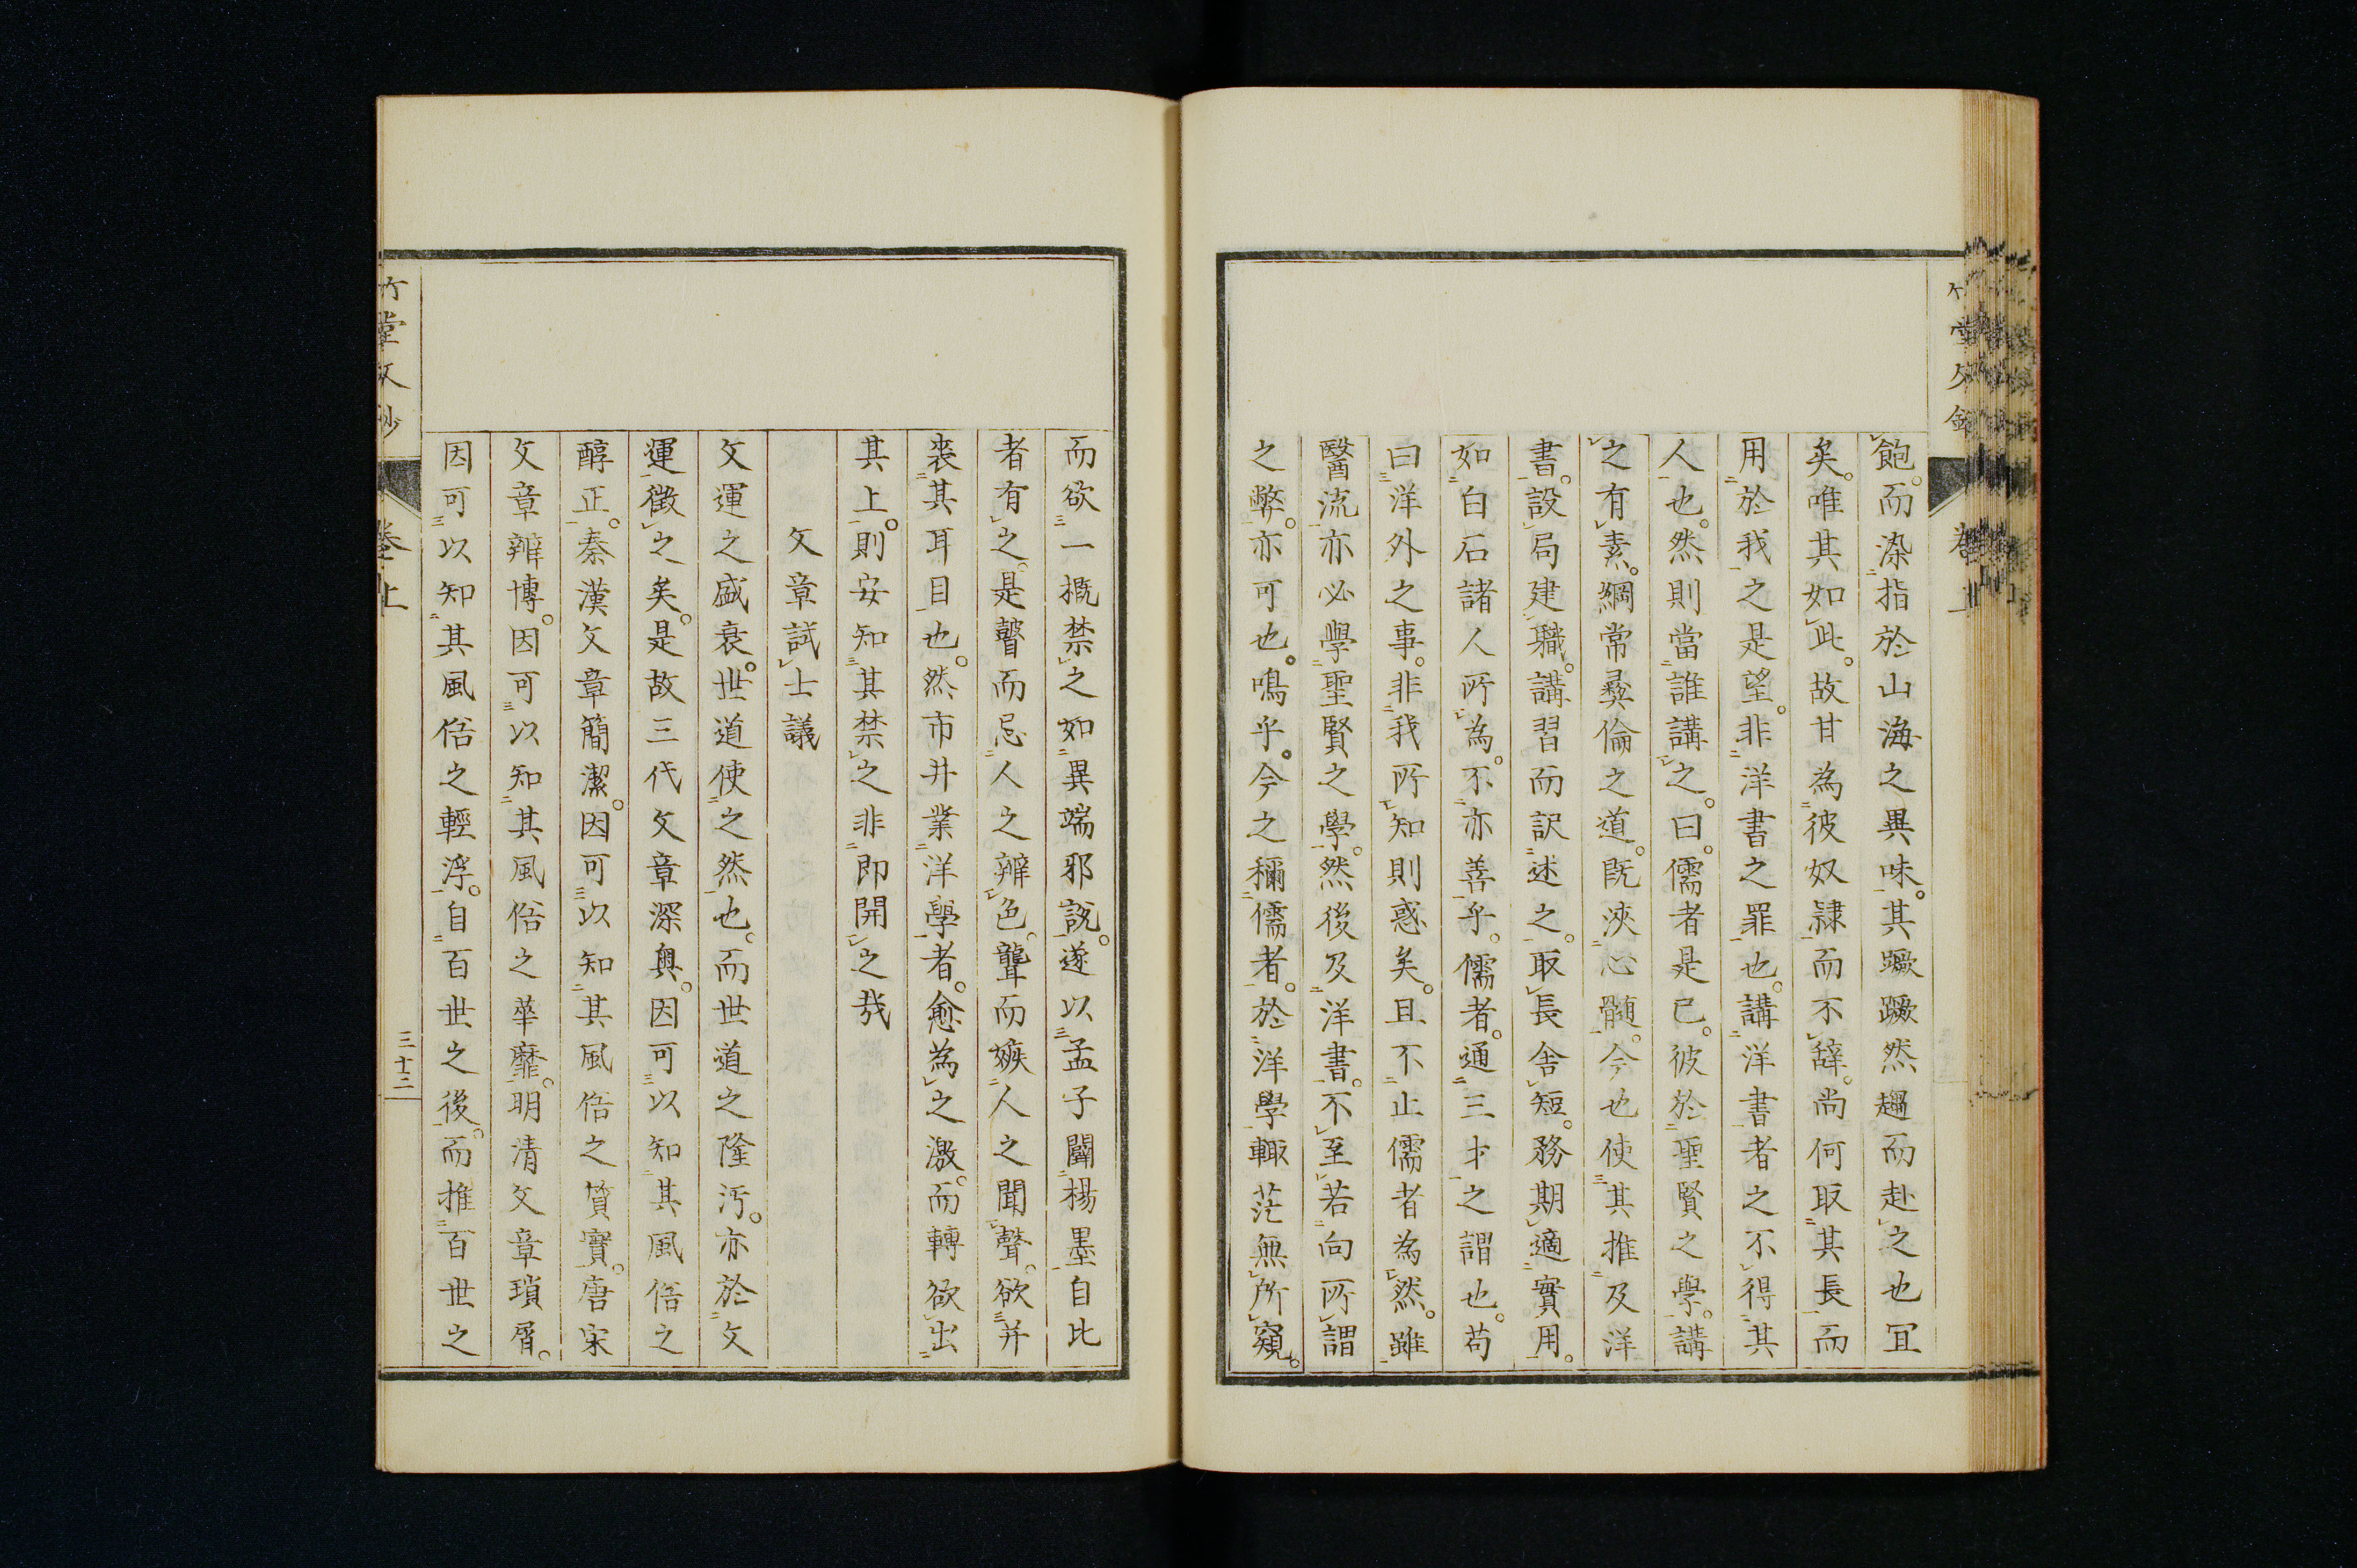 飽。而染指於山海之異味。其蹶蹶然趨而赴之也冝
矣。唯其如此。故甘為彼奴隷而不辞。尚何取其長而
用於我之是望。非洋書之罪也。講洋書者之不得其
人也。然則當誰講之。曰。儒者是已。彼於聖賢之學。講
之有素。綱常彛倫之道。既浹心髄。今也使其推及洋
書。設局建職。講習而訳述之。取長舎短。務期適實用。
如白石諸人所為。不亦善乎。儒者。通三才之謂也。苟
曰洋外之事。非我所知則惑矣。且不止儒者為然。雖
醫流亦必學聖賢之學。然後及洋書。不至若向所謂
之弊。亦可也。鳴乎。今之稱儒者。於洋學輙茫無所窺。
而欲一概禁之如異端邪説。遂以孟子闢楊墨自比
者有之。是瞽而忌人之辨色。聾而嫉人之聞聲。欲并
喪其耳目也。然市井業洋學者。愈為之激。而轉欲出
其上。則安知其禁之非即開之哉
文章試士議
文運之盛衰。世道使之然也。而世道之隆汚。亦於文
運徴之矣。是故三代文章深奥。因可以知其風俗之
醇正。秦漢文章簡潔。因可以知其風俗之質實。唐宋
文章辨博。因可以知其風俗之華靡。明清文章瑣屑。
因可以知其風俗之輕浮。自百世之後。而推百世之
竹堂文鈔
卷上
三十三